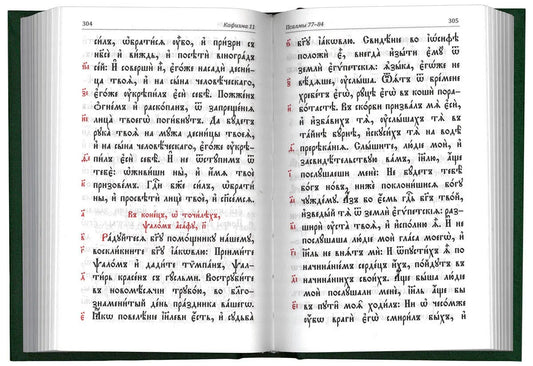 304
Кафисма 11
си́лъ, ѡ҆брати́сѧ ᲂу҆̀бо, и҆ при́зри съ
нб҃се́ и҆ ви́ждь, и҆ посѣти̑ вїногра́дъ
се́й: И҆ соверши́ и҆̀, є҆го́же насадѝ десни́-
ца твоѧ̀, и҆ на сы́на человѣ́ческаго,
є҆го́же ᲂу҆крѣпи́лъ є҆сѝ себѣ̀. Пожже́нъ
ѻ҆гне́мъ и҆ раско́панъ, ѿ запреще́нїѧ
лица̀ твоегѡ̀ поги́бнꙋтъ. Да бꙋ́детъ
рꙋка̀ твоѧ̀ на мꙋ́жа десни́цы твоеѧ̀,
и҆ на сы́на человѣ́ческаго, є҆го́же ᲂу҆крѣ-
пи́лъ є҆сѝ себѣ̀. И҆ не ѿстꙋ́пимъ ѿ
тебє̀: ѡ҆живи́ши ны̀, и҆ и҆́мѧ твоѐ
призове́мъ. Гдⷭ҇и бж҃е си́лъ, ѡ҆брати́
ны, и҆ просвѣтѝ лицѐ твоѐ, и҆ спасе́мсѧ.
Въ коне́цъ, ѡ҆ точи́лѣхъ,
ѱало́мъ а҆са́фꙋ, п҃
Ра́дꙋйтесѧ бг҃ꙋ помо́щникꙋ на́шемꙋ,
воскли́кните бг҃ꙋ і҆а́кѡвлю: Прїими́те
ѱало́мъ и҆ дади́те тѷмпа́нъ, ѱал-
ти́рь красе́нъ съ гꙋ́сльми. Вострꙋби́те
въ новомⷭ҇чїи трꙋбо́ю, во бл҃го-
знамени́тый де́нь пра́здника ва́шегѡ.
Ꙗ҆́кѡ повелѣ́нїе і҆и҃леви є҆́сть, и҆ сꙋдьба̀
Псалмы 77–84
305
бг҃ꙋ і҆а́кѡвлю. Свидѣ́нїе во і҆ѡ́сифѣ
положѝ є҆̀, внегда̀ и҆зы́ти є҆мꙋ̀ ѿ
землѝ є҆гѵ́петскїѧ: ѧ҆зы́ка, є҆гѡ́же не
вѣ́дѧше, ᲂу҆слы́ша. Ѿѧ́тъ ѿ бре́мене
хребе́тъ є҆гѡ̀, рꙋ́цѣ є҆гѡ̀ въ ко́ши пора-
бо́тастѣ. Въ ско́рби призва́лъ мѧ̀ є҆сѝ,
и҆ и҆зба́вихъ тѧ̀, ᲂу҆слы́шахъ тѧ̀ въ
та́йнѣ бꙋ́рнѣ, и҆скꙋси́хъ тѧ̀ на водѣ̀
прерѣка́нїѧ. Слы́шите, лю́дїе моѝ, и҆
засвидѣ́тельствꙋю ва́мъ, і҆и҃лю, а҆́ще
послꙋ́шаеши менѐ: Не бꙋ́детъ тебѣ̀
бо́гъ но́въ, нижѐ поклони́шисѧ бо́гꙋ
чꙋжде́мꙋ. А҆́зъ бо є҆́смь гдⷭ҇ь бг҃ъ тво́й,
и҆зведы́й тѧ̀ ѿ землѝ є҆гѵ́петскїѧ: раз-
шири̑ ᲂу҆ста̀ твоѧ̑, и҆ и҆спо́лню ѧ҆̀. И҆ не
послꙋ́шаша лю́дїе моѝ гла́са моегѡ̀, и҆
і҆и҃ль не внѧ́тъ мѝ. И҆ ѿпꙋсти́хъ ѧ҆̀ по
начина́нїємъ серде́цъ и҆́хъ, по́йдꙋтъ въ
начина́нїихъ свои́хъ. А҆́ще бы́ша лю́дїе
моѝ послꙋ́шали менѐ, і҆и҃ль а҆́ще бы
въ пꙋти̑ моѧ̑ ходи́лъ: Ни ѡ҆ чесо́мже
ᲂу҆́бѡ врагѝ є҆гѡ̀ смири́лъ бы́хъ, и҆